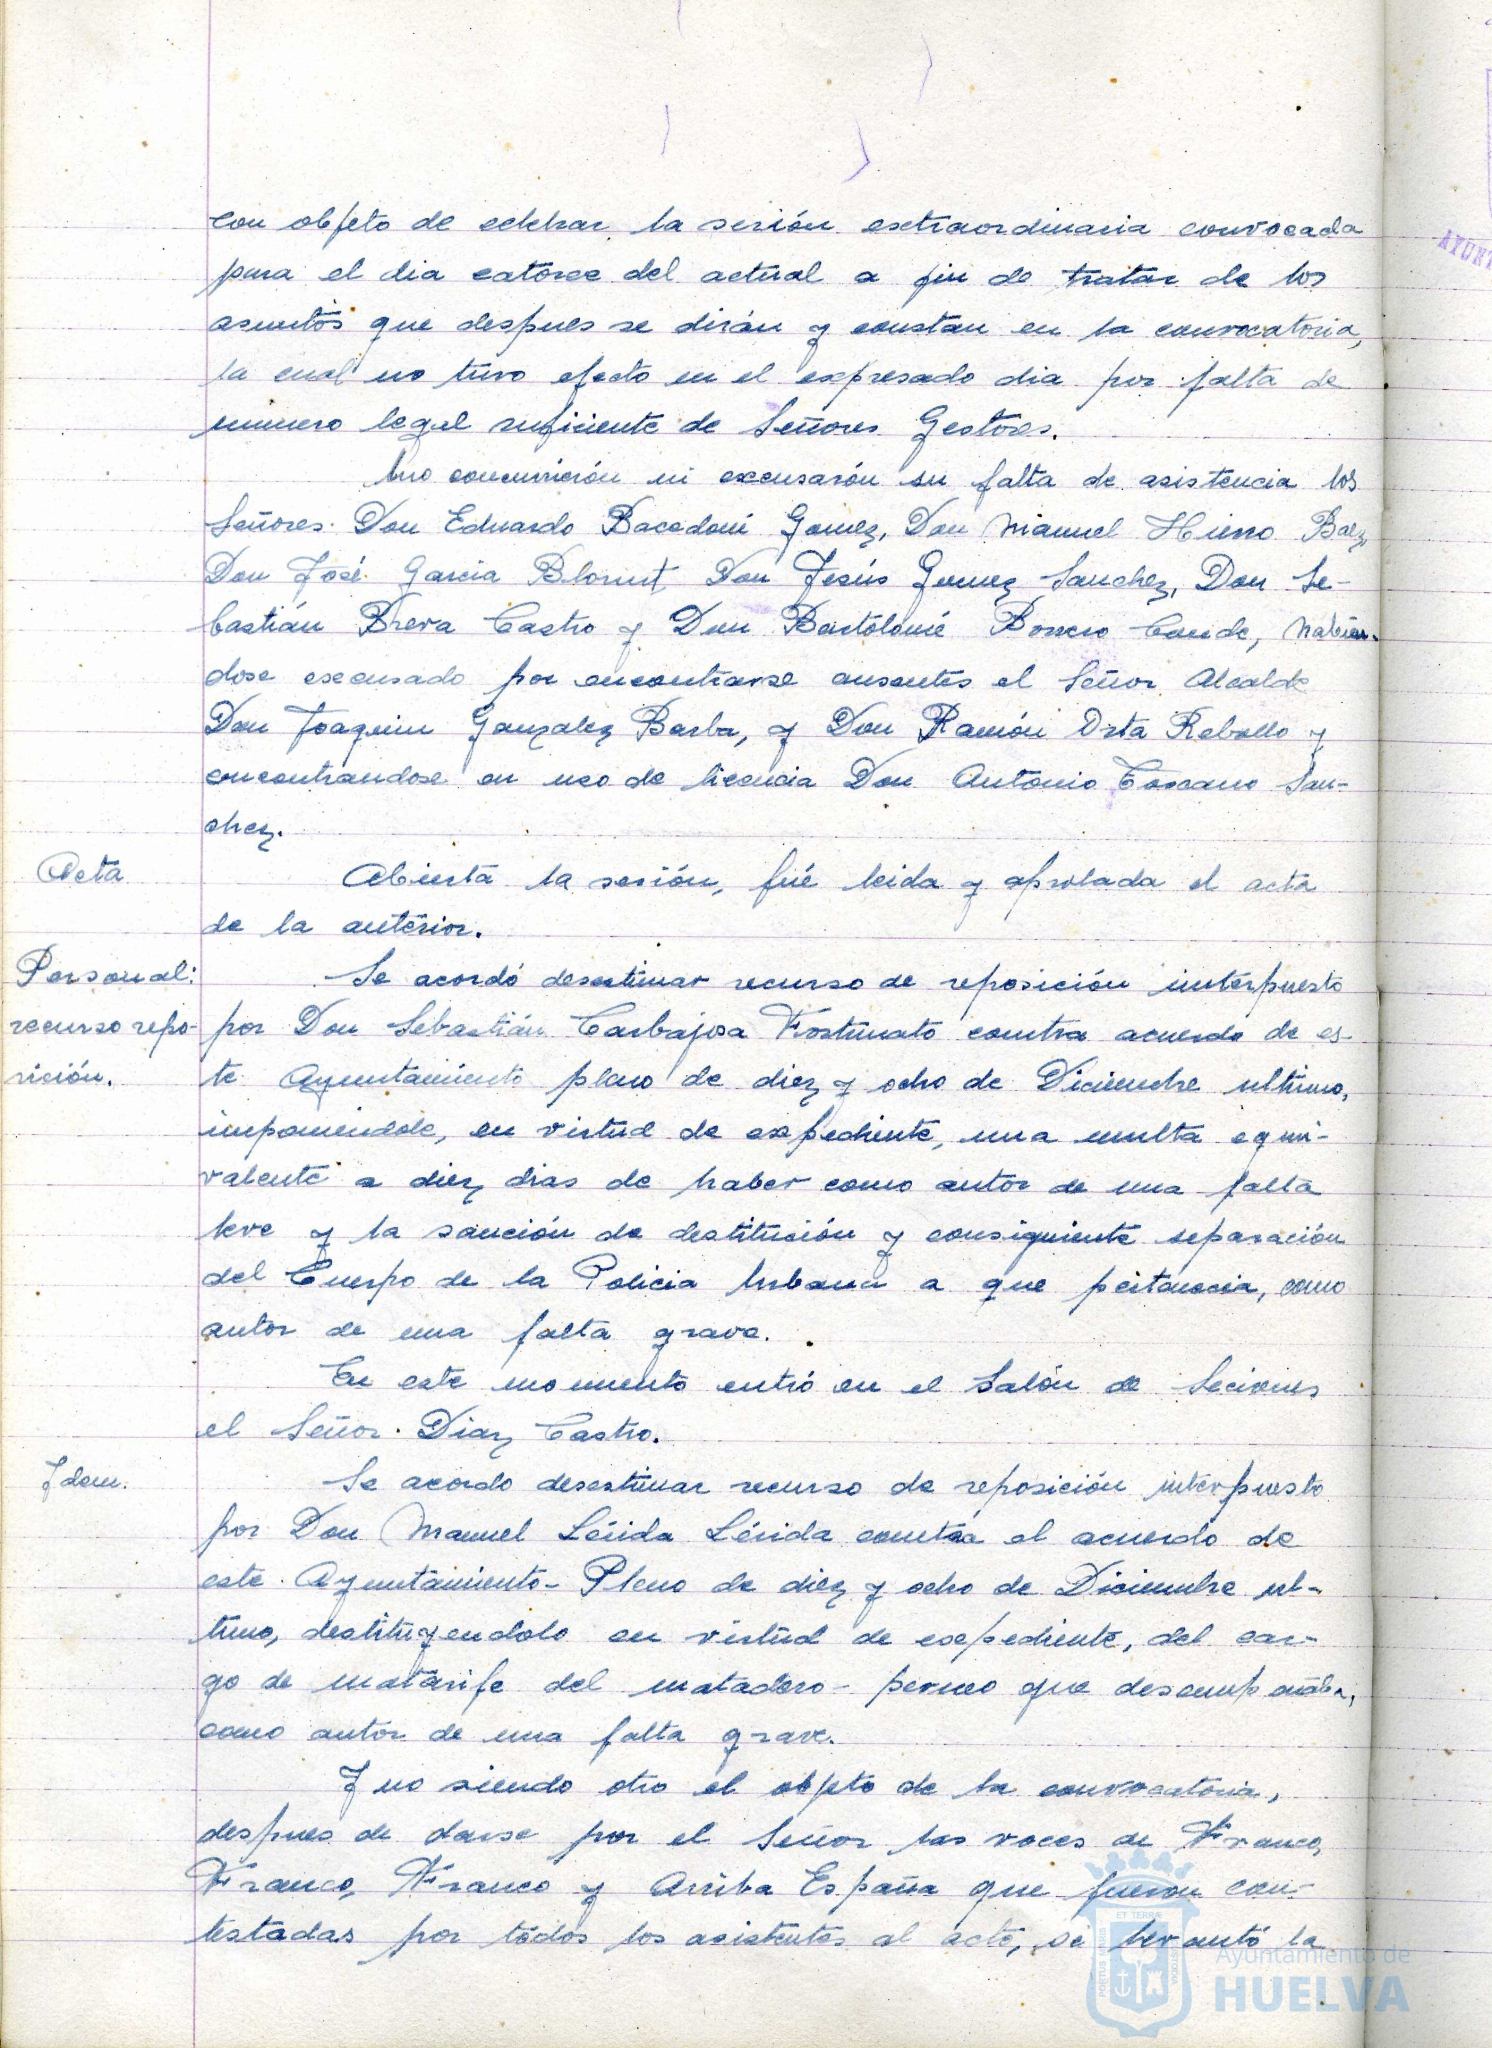 con objeto de celebrar la sesión extraordinaria convocada
para el dia catorce del actual a fin de tratar de los
asuntos que despues se dirán y constan en la convocatoria,
la cual no tuvo efecto en el expresado dia por falta de
número legal suficiente de Señores Gestores.
No concurrión ni excusarón su falta de asistencia los
Señores Don Eduardo Bacedoni Gomez, Don Manuel Hierro Baez
Don José Garcia Blornt Don Jesús Gomez Sanchez, Don Se-
bastián Breva Castro y Don Bartolomé Borrero Conde, habien-
dose escusado por encontrarse ausentes el Señor Alcalde
Don Joaquin Gonzalez Barba, y Don Ramón Orta Rebollo y
encontrandose en uso de licencia Don Antonio Toscano San-
chez.
Acta
Abierta la sesión, fué leida y aprobada el acta
de la anterior.
Personal:
recurso repo-
sición.
Se acordó desestimar recurso de reposición interpuesto
por Don Sebastián Carbajosa Fortunato contra acuerdo de es-
te Ayuntamiento pleno de diez y ocho de Diciembre ultimo,
imponiendole, en virtud de expediente, una multa equi-
valente a diez dias de haber como autor de una falta
leve y la sanción de destitución y consiguiente separación
del Cuerpo de la Policia Urbana a que pertenecia, como
autor de una falta grave.
En este momento entró en el Salón de Seciones
el Señor Diaz Castro.
Idem.
Se acordo desestimar recurso de reposición interpuesto
por Don Manuel Lérida Lérida contra el acuerdo de
este Ayuntamiento-Pleno de diez y ocho de Diciembre ul-
timo, destituyendolo en virtud de expediente, del car-
go de matarife del matadero-permeo que desempeñaba,
como autor de una falta grave.
Y no siendo otro el objeto de la convocatoria,
despues de darse por el Señor las voces de Franco,
Franco, Franco y Arriba España que fueron con-
testadas por todos los asistentes al acto, se levantó la
AYUNT
ET TERRÆ
PORTUS MARIS
CUSTODIA
Ayuntamiento de
HUELVA